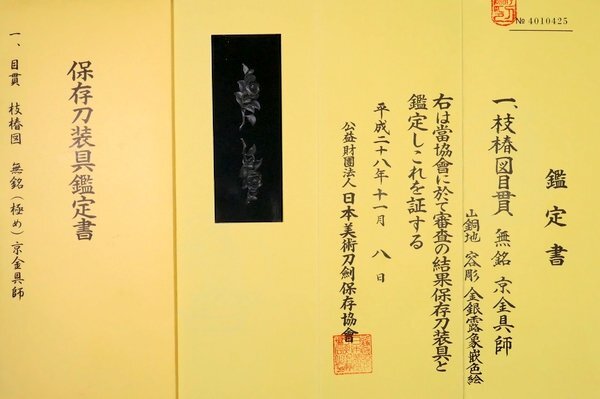 № 4010425
鑑定書
一、枝椿図目貫 無銘 京金具師
山銅地 容彫 金銀露象嵌色絵
右は當協會に於て審査の結果保存刀装具と
鑑定しこれを証する
平成二十八年十一月 八 日
公益財團法人 日本美術刀劍保存協會
保存刀装具鑑定書
一、目貫 枝椿図 無銘(極め)京金具師